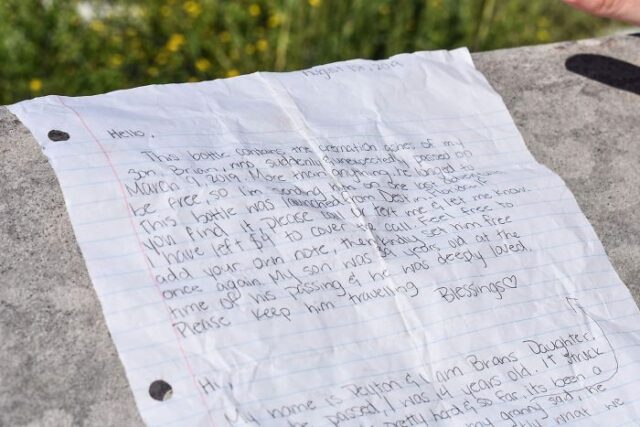 August 1st, 2019
Hello,
This bottle contains the cremation ashes of my
son Brian, who suddenly & unexpectedly passed on
March 9, 2019. More than anything, he longed to
be free, so I'm sending him on one last adventure.
This bottle was launched from Destin, Florida. If
you find it, please call or text me & let me know.
I have left $ to cover the call. Feel free to
add your own note, then kindly set him free
once again. My son was years old at the
time of his passing & he was deeply loved.
Please keep him travelling Blessings♡
Hi,
My name is Peyton & I am Brians Daughter.
he passed, I was 14 years old. It struck
pretty hard & so far, its been a
my granny said, he
what we